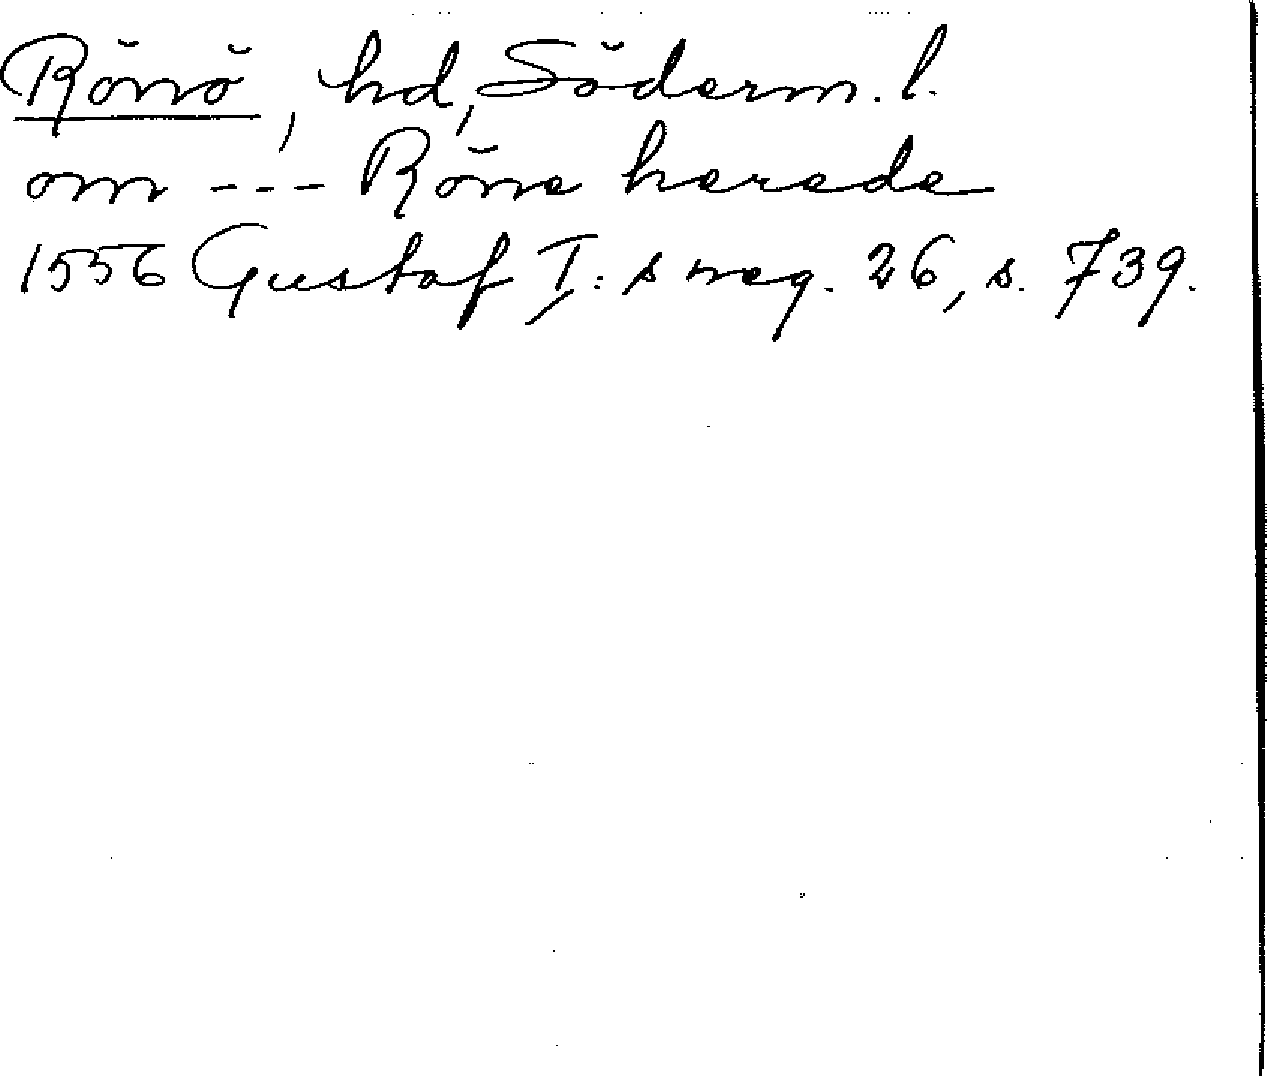 Rönö, hd, Söderm. l.
om --- Röne harade
1556 Gustaf I:s reg. 26, s. 739.